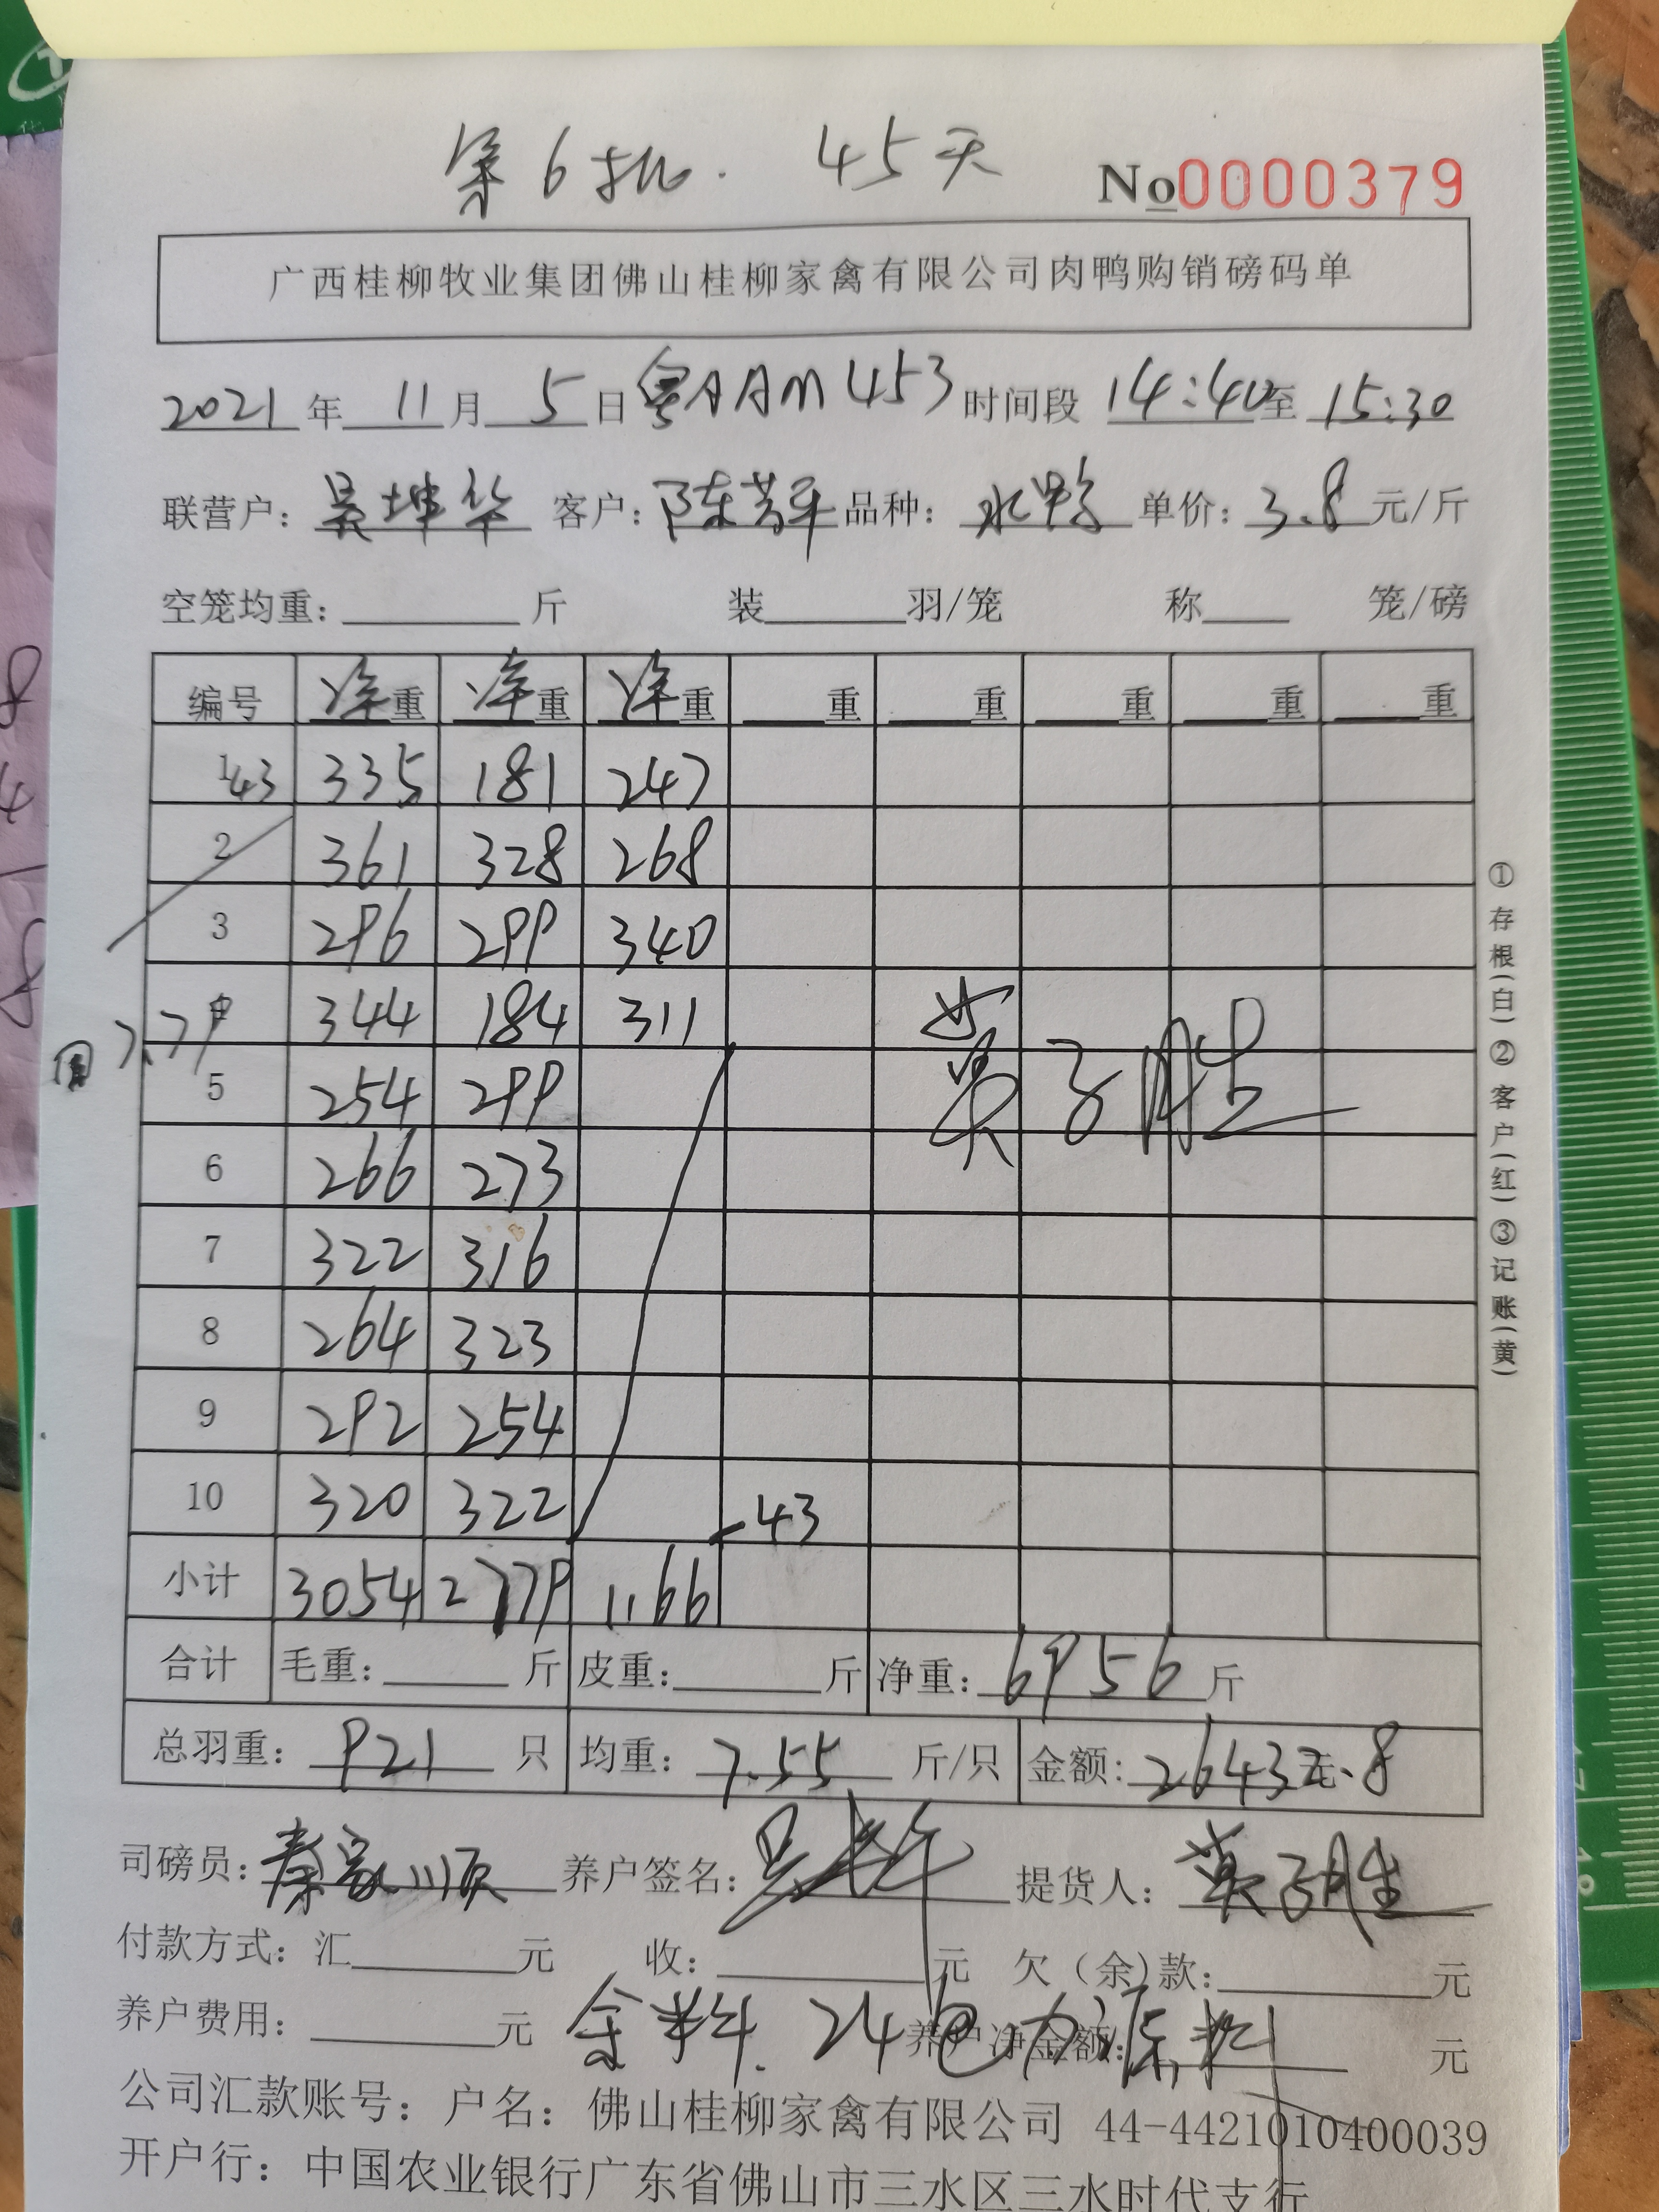 第6批. 45天
No0000379
广西桂柳牧业集团佛山桂柳家禽有限公司肉鸭购销磅码单
2021年 11月 5日 粤AAM453 时间段 14:40至 15:30
联营户: 吴坤华 客户: 陈芳平 品种: 水鸭 单价: 3.8元/斤
空笼均重: 斤 装 羽/笼 称 笼/磅
编号 净重 净重 净重 重 重 重 重 重
1 43 335 181 247
2 361 328 268
3 296 299 340
344 184 311
7.79
5 254 299
6 266 273
7 322 316
8 264 323
9 292 254
10 320 322 -43
小计 3054 2779 1166
黄子胜
①存根(白)②客户(红)③记账(黄)
合计 毛重: 斤 皮重: 斤 净重: 6956斤
总羽重: 921 只 均重: 7.55 斤/只 金额: 26432.8 元
司磅员: 秦家顺 养户签名: 提货人: 黄子胜
付款方式: 汇 元 收: 元 欠(余)款: 元
养户费用: 元 余料. 24包 养户净金额: 元
公司汇款账号: 户名: 佛山桂柳家禽有限公司 44-4421010400039
开户行: 中国农业银行广东省佛山市三水区三水时代支行